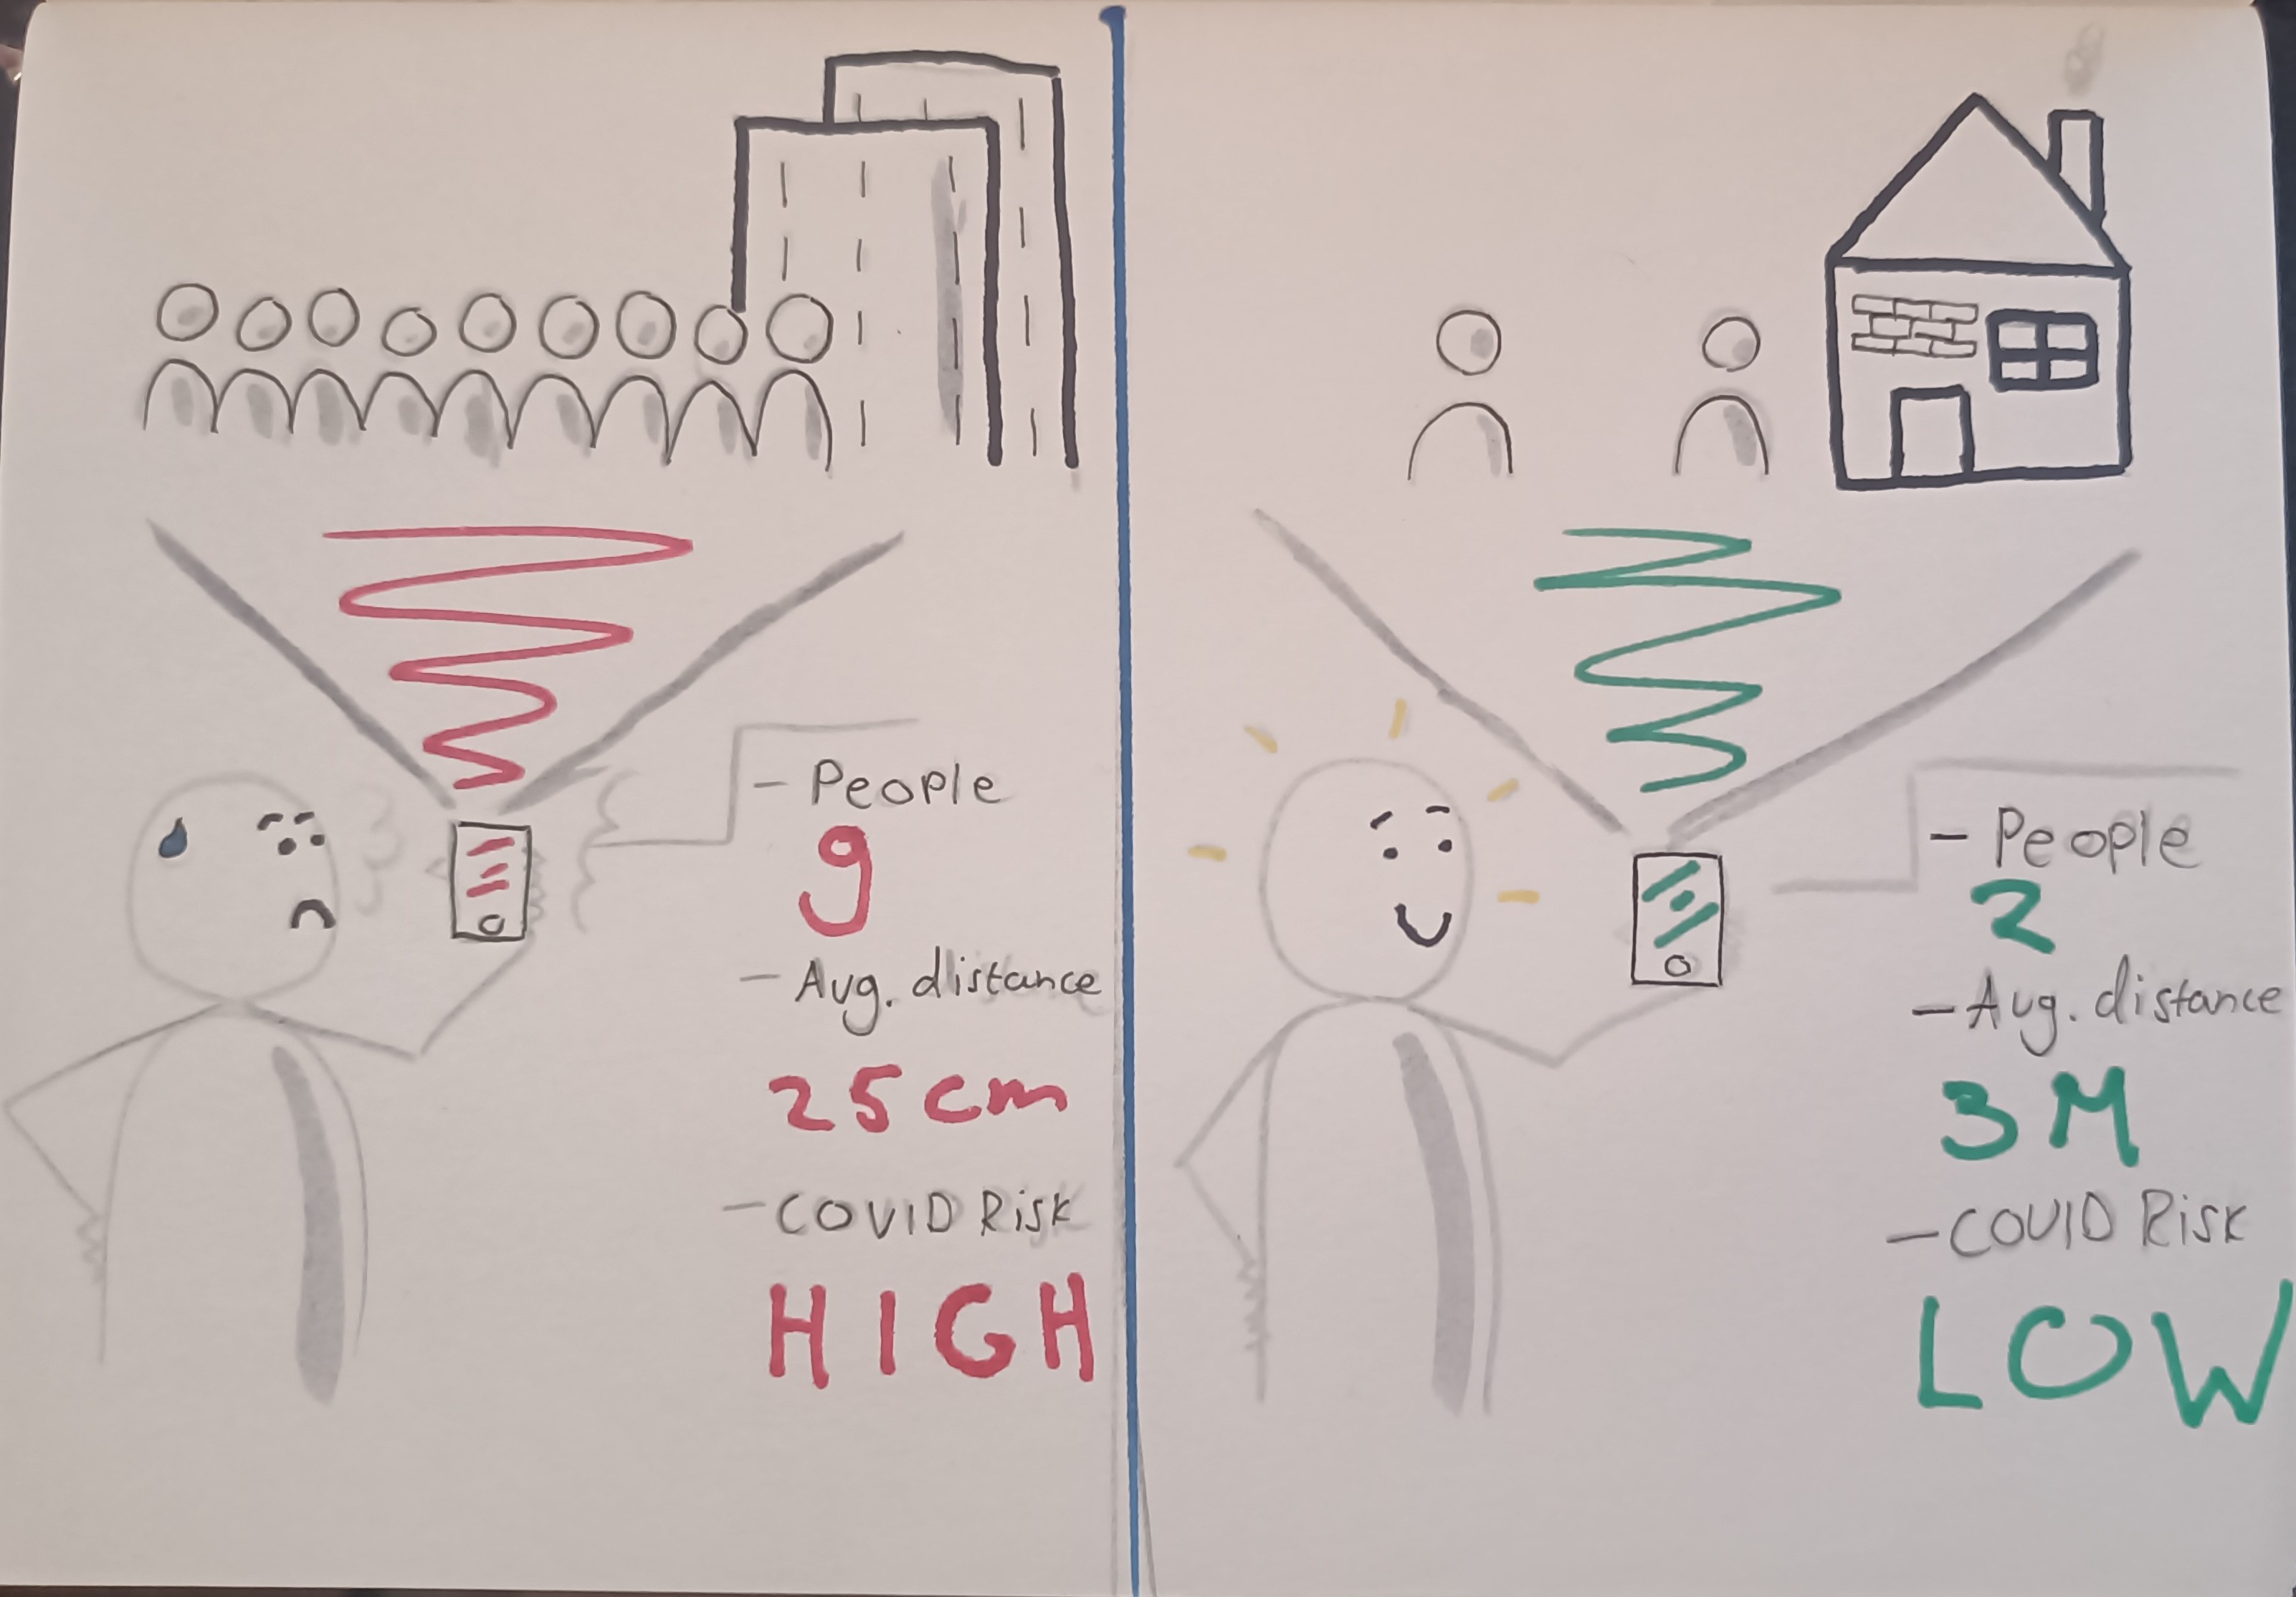 - People
9
- Avg. distance
25cm
- COVID Risk
HIGH
- People
2
- Avg. distance
3M
- COVID Risk
LOW